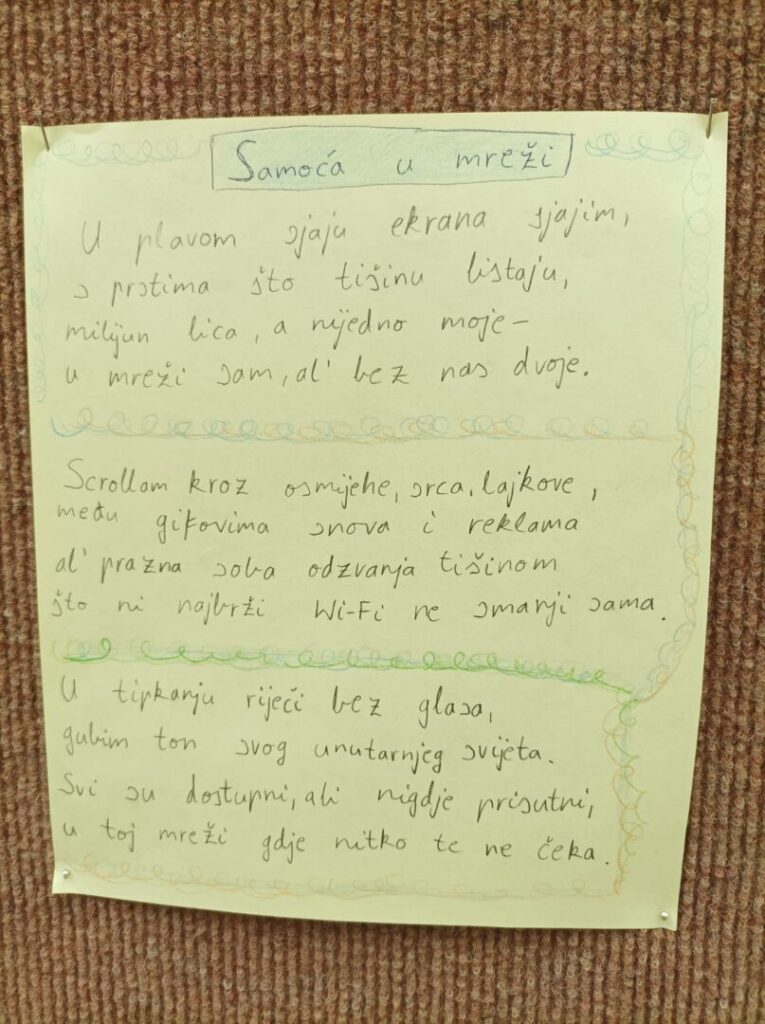 Samoća u mreži
U plavom sjaju ekrana sjajim,
s prstima što tišinu listaju,
milijun lica, a nijedno moje-
u mreži sam, al' bez nas dvoje.
Scrollam kroz osmijehe, srca, lajkove,
među gifovima snova i reklama
al' prazna soba odzvanja tišinom
što ni najbrži Wi-Fi ne smanji sama.
U tipkanju riječi bez glasa,
gubim ton svog unutarnjeg svijeta.
Svi su dostupni, ali nigdje prisutni,
u toj mreži gdje nitko te ne čeka.